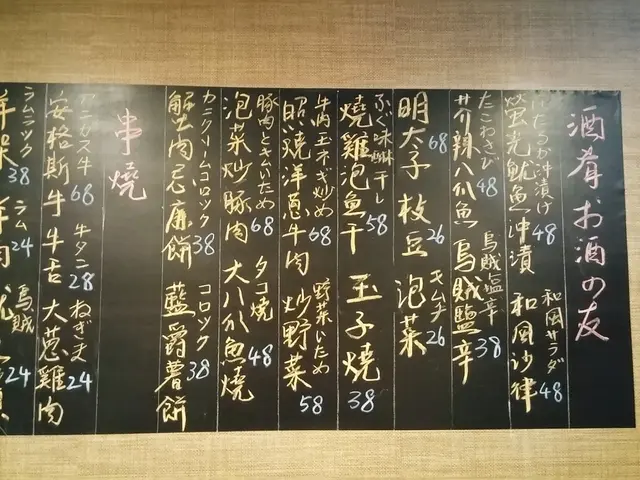 酒肴 お酒の友
ほたるか沖漬け 和風サラダ
螢光魷魚沖漬 48 和風沙律 48
たこわさび 烏賊塩辛
芥辣八爪魚 48 烏賊鹽辛 38
キムチ
明太子 68 枝豆 26 泡菜 26
ふぐ味醂干し
燒雞泡魚干 58 玉子燒 38
牛肉玉ネギ炒め 野菜いため
照燒洋葱牛肉 68 炒野菜 58
豚肉とキムいため タコ焼
泡菜炒豚肉 68 大八爪魚燒 48
カニクリームコロッケ コロッケ
蟹肉忌廉餅 38 藍爵薯餅 38
串燒
アンガス牛 牛タン ねぎま
安格斯牛 68 牛舌 28 大葱雞肉 24
ラムラック ラム 烏賊
38 24 24